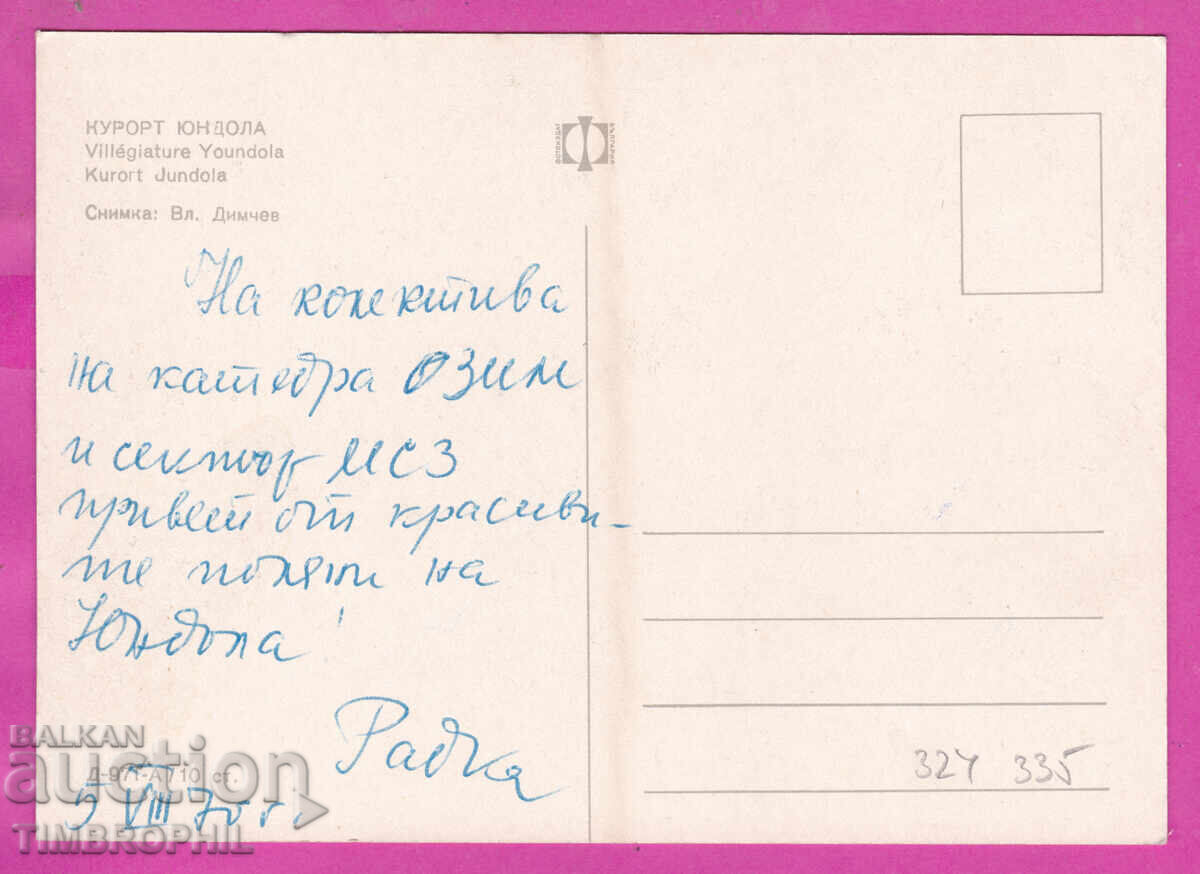 КУРОРТ ЮНДОЛА
Villégiature Youndola
Kurort Jundola
Снимка: Вл. Димчев
ФОТОИЗДАТ
БЪЛГАРИЯ
На колектива
на катедра ОЗИМ
и сектор МСЗ
привет от красиви-
те поляни на
Юндола!
Радка
Д-971-А 10 ст.
5 VIII 70 г.
324 335
BALKAN
auction
TIMBROPHIL